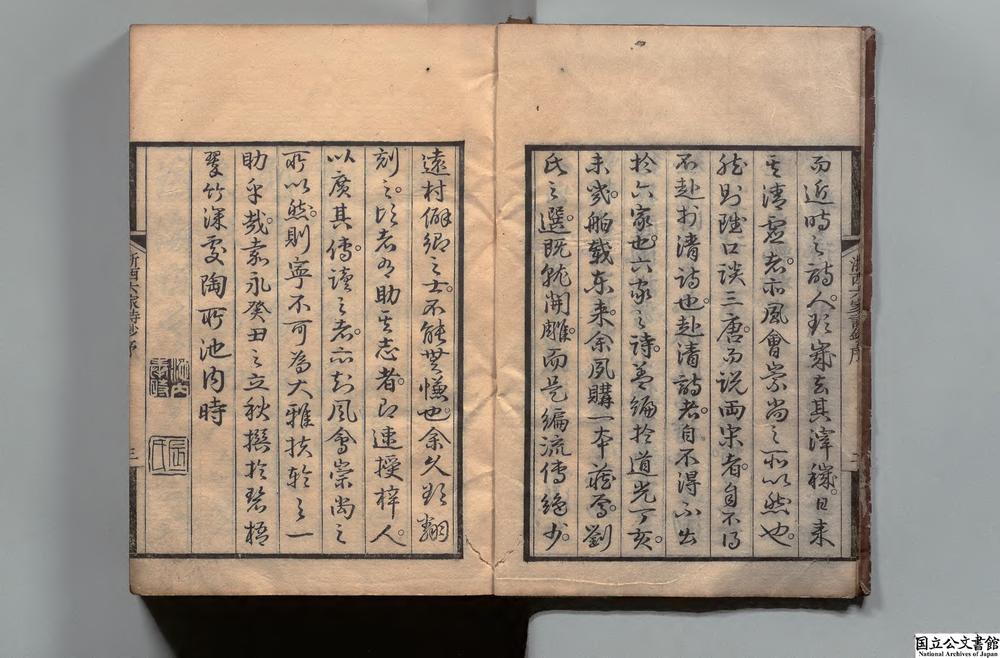 而近時之詩人。去其滓穢。日来
其清虛者。亦風會崇尚之所以然也。
然則雖口談三唐。而説両宋者。自不得
不赴於清詩也。赴清詩者。自不得不出
於六家也。六家之詩。編於道光丁亥。
未幾舶載東来。余夙購一本蔵焉。劉
氏之選。既就開雕。而是編流傳絶少。
浙西六家詩鈔序
遠村僻郷之士。不能無慊也。余久欲翻
刻之。頃者有助其志者。即速授梓人。
以廣其傳。讀之者。亦知風會崇尚之
所以然。則寧不可為大雅扶輪之一
助乎哉。嘉永癸丑之立秋撰於碧梧
翠竹深處陶所池内時
浙西六家詩鈔序 三
国立公文書館
National Archives of Japan